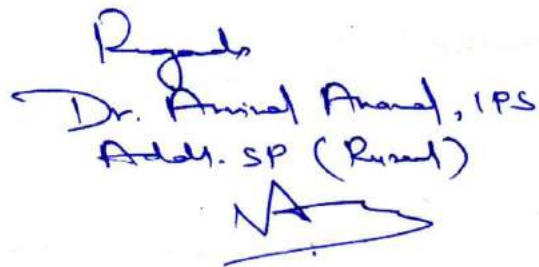 Regards
Dr. Anand, IPS
Addl. SP (Rural)